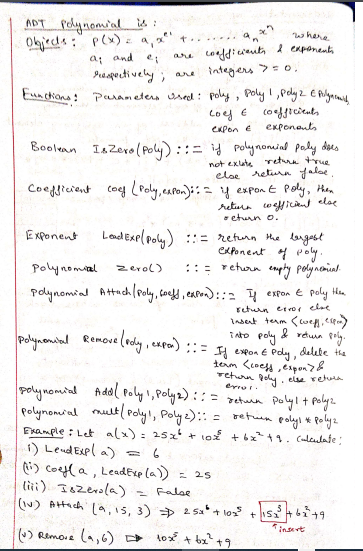 ADT Polynomial is :
Objects : P(x) = a₁x^e¹ + ........ aₙxⁿ where
aᵢ and eᵢ are coefficients & exponents
respectively ; are integers >= 0.
Functions : Parameters used : poly, Poly 1, Poly 2 ∈ Polynomial,
Coef ∈ coefficients
expon ∈ exponents
Boolean IsZero(Poly) ::= if polynomial poly does
not exists return true
else return false.
Coefficient coef (Poly, expon) ::= if expon ∈ Poly, then
return coefficient else
return 0.
Exponent LeadExp(Poly) ::= return the largest
exponent of poly.
Polynomial zero() ::= return empty polynomial
Polynomial Attach(Poly, coeff, expon) ::= If expon ∈ poly then
return error else
insert term <coeff, expon>
into poly & return poly.
Polynomial Remove(Poly, expon) ::= If expon ∈ Poly, delete the
term <coeff, expon> &
return Poly. else return
error.
Polynomial Add(Poly1, Poly2) ::= return Poly1 + Poly2
Polynomial mult(Poly1, Poly2) ::= return poly1 * Poly2
Example : Let a(x) = 25x⁶ + 10x⁵ + 6x² + 9. Calculate :
i) LeadExp(a) = 6
(ii) Coef(a, LeadExp(a)) = 25
(iii) IsZero(a) = False
(iv) Attach (a, 15, 3) ⇒ 25x⁶ + 10x⁵ + 15x³ + 6x² + 9
insert
(v) Remove (a, 6) ⇒ 10x⁵ + 6x² + 9